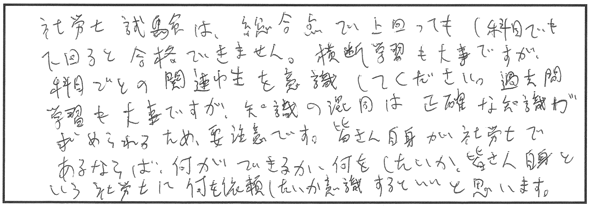 社労士試験は、総合点で上回っても1科目でも
下回ると合格できません。横断学習も大事ですが、
科目ごとの関連性を意識してください。過去問
学習も大事ですが、知識の混同は正確な知識が
求められるため、要注意です。皆さん自身が社労士で
あるならば、何ができるか、何をしたいか、皆さん自身と
いう社労士に何を依頼したいか意識するといいと思います。